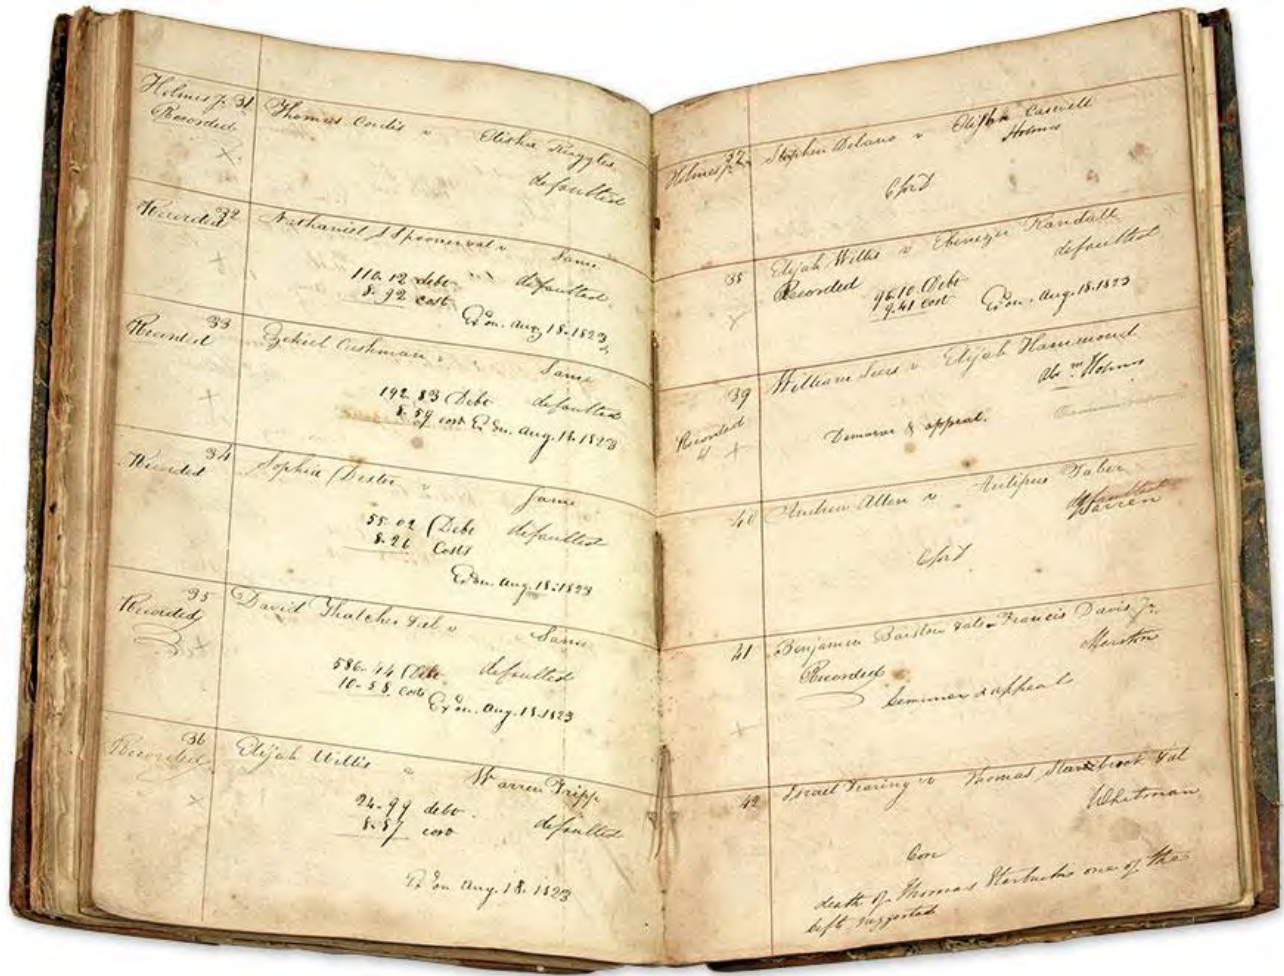 Holmes Jr. 31 Thomas Cordis v Elisha Ruggles
Recorded
defaulted
32 Nathaniel S Spooner & al v Same
Recorded
110.12 debt defaulted
8.92 cost
Exon. Aug 18. 1823
33 Ezekiel Cushman v Same
Recorded
192.83 Debt defaulted
8.59 cost Exon. Aug. 18. 1823
34 Sophia Dexter v Same
Recorded
55.02 Debt defaulted
8.26 Costs
Exon. Aug. 18. 1823
35 David Thatcher & al v Same
Recorded
586.44 Debt defaulted
10.58 Costs
Exon. Aug. 18. 1823
36 Elijah Willis v Warren Tripp
Recorded
24.99 debt defaulted
8.87 cost
Exon Aug. 18. 1823
Holmes Jr. 37 Stephen Delano v Elijah Caswell
Holmes
Cont
38 Elijah Willis v Ebenezer Randall
Recorded defaulted
96.10 Debt
9.41 cost Exon. Aug. 18. 1823
39 William Sears v Elijah Hammond
Abm. Holmes
Recorded
Demurrer & appeal.
40 Andrew Allen v Antipas Taber
defaulted
Warren
Cont
41 Benjamin Barstow & al v Francis Davis Jr.
Marston
Recorded
Demurrer & appeal
42 Israel Fearing v Thomas & al
Whitman
Con
death of Thomas Starbuck one of the
deft suggested